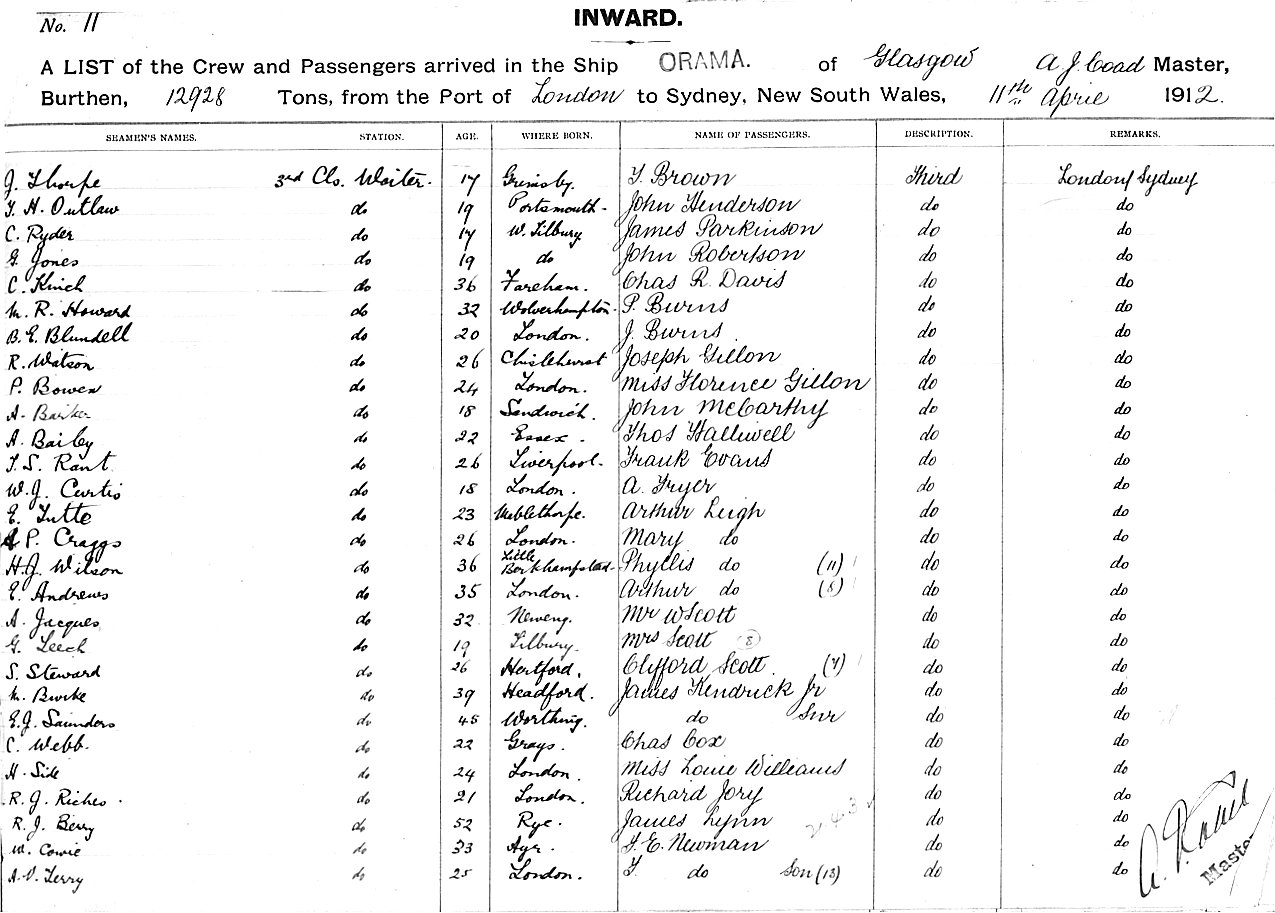 No. 11
INWARD.
A LIST of the Crew and Passengers arrived in the Ship ORAMA. of Glasgow A J Coad Master,
Burthen, 12928 Tons, from the Port of London to Sydney, New South Wales, 11th April 1912.
SEAMEN'S NAMES. STATION. AGE. WHERE BORN. NAME OF PASSENGERS. DESCRIPTION. REMARKS.
J. Thorpe 3rd Cls. Waiter. 17 Grimsby. T. Brown Third London/Sydney
T. H. Outlaw do 19 Portsmouth. John Henderson do do
C. Ryder do 17 W. Tilbury James Parkinson do do
G. Jones do 19 do John Robertson do do
C. Kinch do 36 Fareham. Chas R. Davis do do
M. R. Howard do 32 Wolverhampton. P. Burns do do
B. E. Blundell do 20 London. J. Burns do do
R. Watson do 26 Chislehurst Joseph Gillon do do
P. Bowen do 24 London. Miss Florence Gillon do do
A. Barker do 18 Sandwich. John McCarthy do do
A. Bailey do 22 Essex. Thos Halliwell do do
T. S. Rant do 26 Liverpool. Frank Evans do do
W. J. Curtis do 18 London. A. Fryer do do
E. Tutte do 23 Mablethorpe. Arthur Leigh do do
P. Craggs do 26 London. Mary do do do
H. J. Wilson do 36 Little Berkhampstead. Phyllis do (11) do do
E. Andrews do 35 London. Arthur do (8) do do
A. Jacques do 32 Mr W Scott do do
G. Leech do 19 Tilbury. Mrs Scott (8) do do
S. Steward do 26 Hertford. Clifford Scott. (7) do do
M. Burke do 39 Headford. James Kendrick Jr do do
E. J. Saunders do 45 Worthing. do Snr do do
C. Webb. do 22 Grays. Chas Cox do do
H. Side do 24 London. Miss Louie Williams do do
R. J. Riches. do 21 London. Richard Jory do do
R. J. Berry do 52 Rye. James Lynn do do
243
W. Cowie do 33 Ayr. F. E. Newman do do
A. V. Terry do 25 London. F. do Son (13) do do
Master